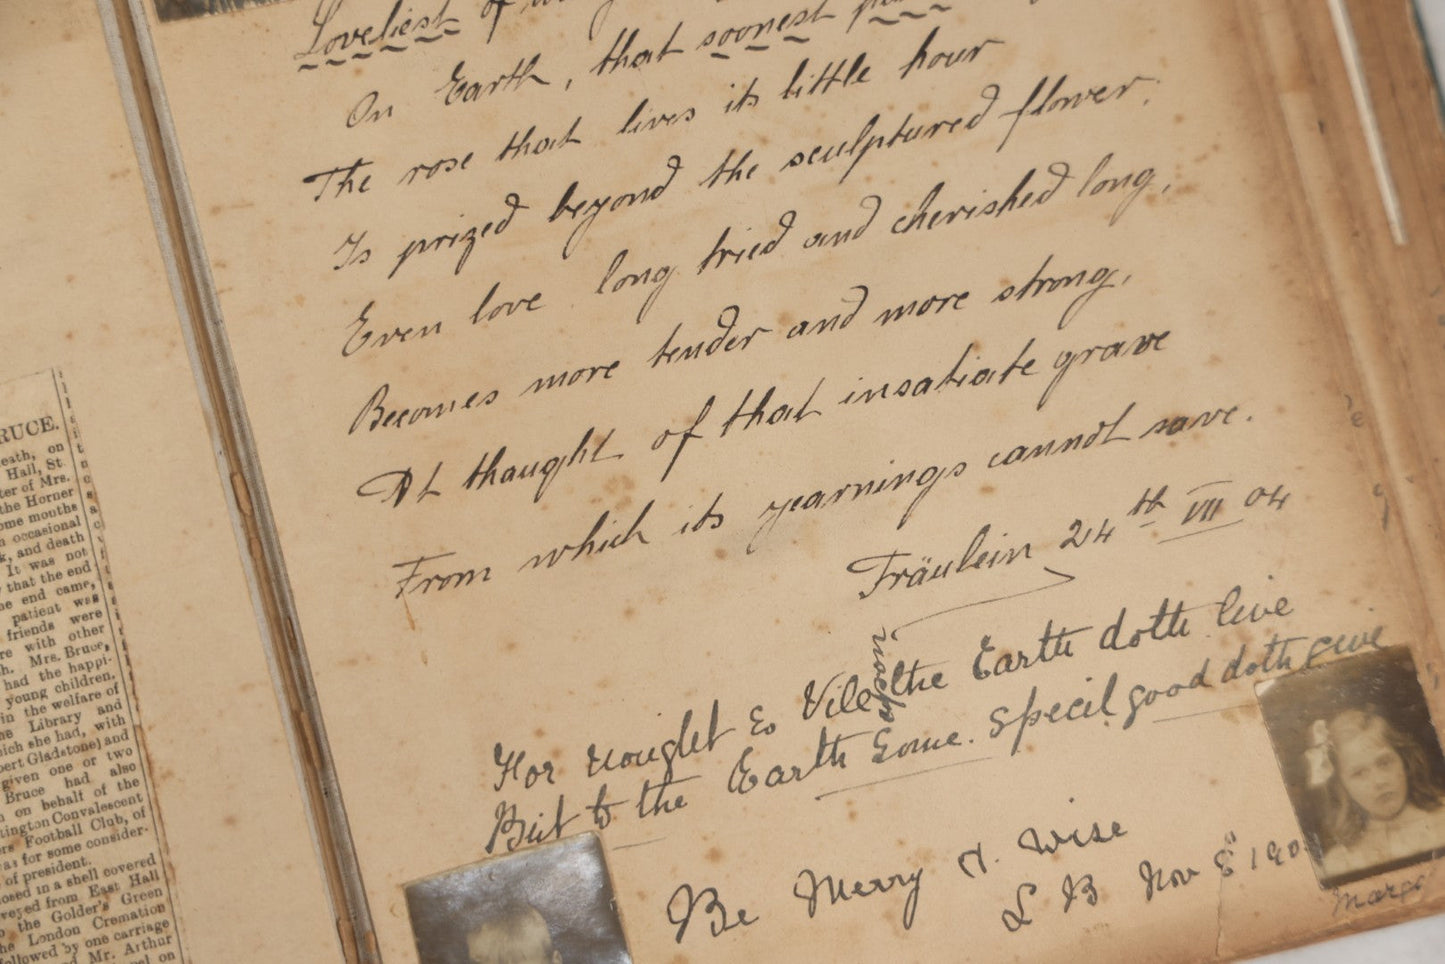 RUCE.
eath, on
Hall, St.
ter of Mrs.
the Horner
ome months
n occasional
k, and death
It was not
that the end
he end came,
patient was
friends were
re with other
h. Mrs. Bruce,
had the happi-
young children,
in the welfare of
he Library and
hich she had, with
bert Gladstone) and
given one or two
Bruce had also
n on behalf of the
tington Convalescent
ers Football Club, of
as for some consider-
of president.
osed in a shell covered
veyed from East Hall
o the Golder's Green
he London Cremation
followed by one carriage
d Mr. Arthur
el on
Loveliest of
On Earth, that soonest
The rose that lives its little hour
Is prized beyond the sculptured flower.
Even love long tried and cherished long,
Becomes more tender and more strong,
At thought of that insatiate grave
From which its yearnings cannot save.
Fräulein 24th VII 04
For nought so Vile upon the Earth doth live
But to the Earth some specil good doth give
Be Merry & Wise
L B Nov 8th 190